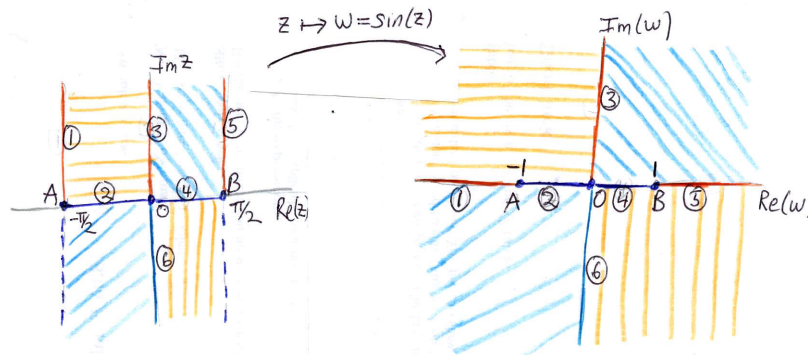 z ↦ w = sin(z)
Im z
Im(w)
① ③ ⑤
③
A ② ④ B
-π/2 0 π/2 Re(z)
⑥
-1 1
① A ② 0 ④ B ⑤ Re(w)
⑥